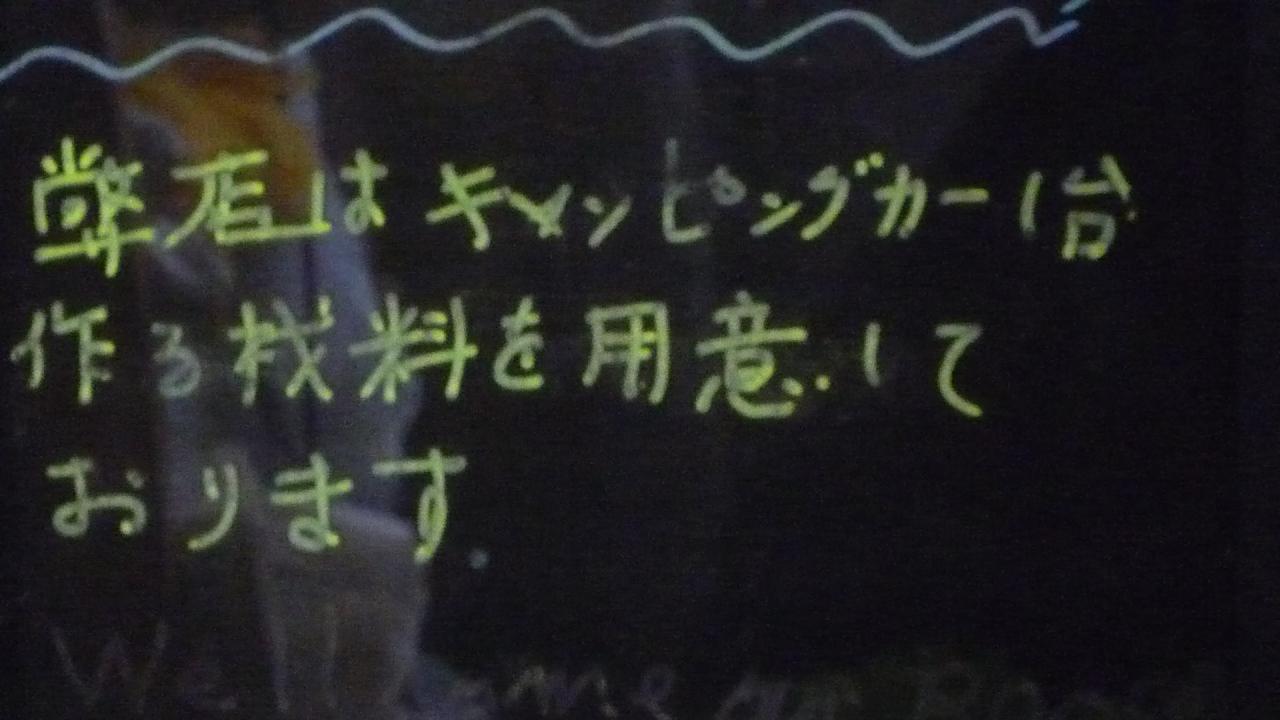 弊店はキャンピングカー1台
作る材料を用意して
おります.